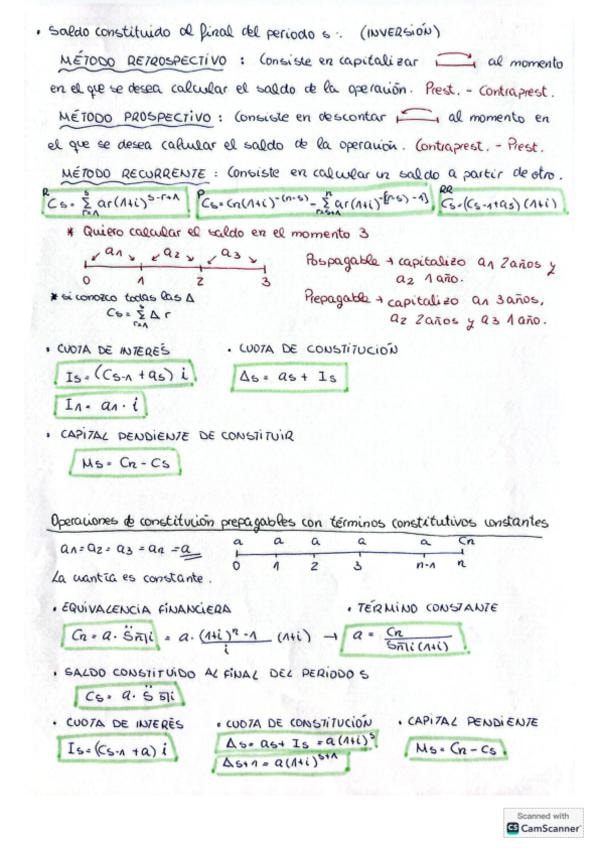 · Saldo constituido al final del periodo s : (INVERSIÓN)
MÉTODO RETROSPECTIVO : Consiste en capitalizar al momento
en el que se desea calcular el saldo de la operación. Prest. - Contraprest.
MÉTODO PROSPECTIVO : Consiste en descontar al momento en
el que se desea calcular el saldo de la operación. Contraprest. - Prest.
MÉTODO RECURRENTE : Consiste en calcular un saldo a partir de otro.
R Cs = s Σ r=1 ar(1+i)^s-r+1 P Cs = Cn(1+i)^-(n-s) - n Σ r=s+1 ar(1+i)^-[(n-s)-1] RR Cs = (Cs-1+as)(1+i)
* Quiero calcular el saldo en el momento 3
a1 a2 a3
0 1 2 3
Pospagable → capitalizo a1 2 años y
a2 1 año.
* si conozco todas las Δ
Cs = s Σ r=1 Δr
Prepagable → capitalizo a1 3 años,
a2 2 años y a3 1 año.
· CUOTA DE INTERÉS · CUOTA DE CONSTITUCIÓN
Is = (Cs-1 + as) i Δs = as + Is
I1 = a1 · i
· CAPITAL PENDIENTE DE CONSTITUIR
Ms = Cn - Cs
Operaciones de constitución prepagables con términos constitutivos constantes
a1 = a2 = a3 = an = a
a a a a a Cn
0 1 2 3 n-1 n
La cuantía es constante.
· EQUIVALENCIA FINANCIERA · TÉRMINO CONSTANTE
Cn = a · S̈n|i = a · (1+i)^n - 1 / i (1+i) → a = Cn / Sn|i (1+i)
· SALDO CONSTITUIDO AL FINAL DEL PERIODO S
Cs = a · S̈ s|i
· CUOTA DE INTERÉS · CUOTA DE CONSTITUCIÓN · CAPITAL PENDIENTE
Is = (Cs-1 + a) i Δs = as + Is = a(1+i)^s Ms = Cn - Cs
Δs+1 = a(1+i)^s+1
Scanned with
CS CamScanner